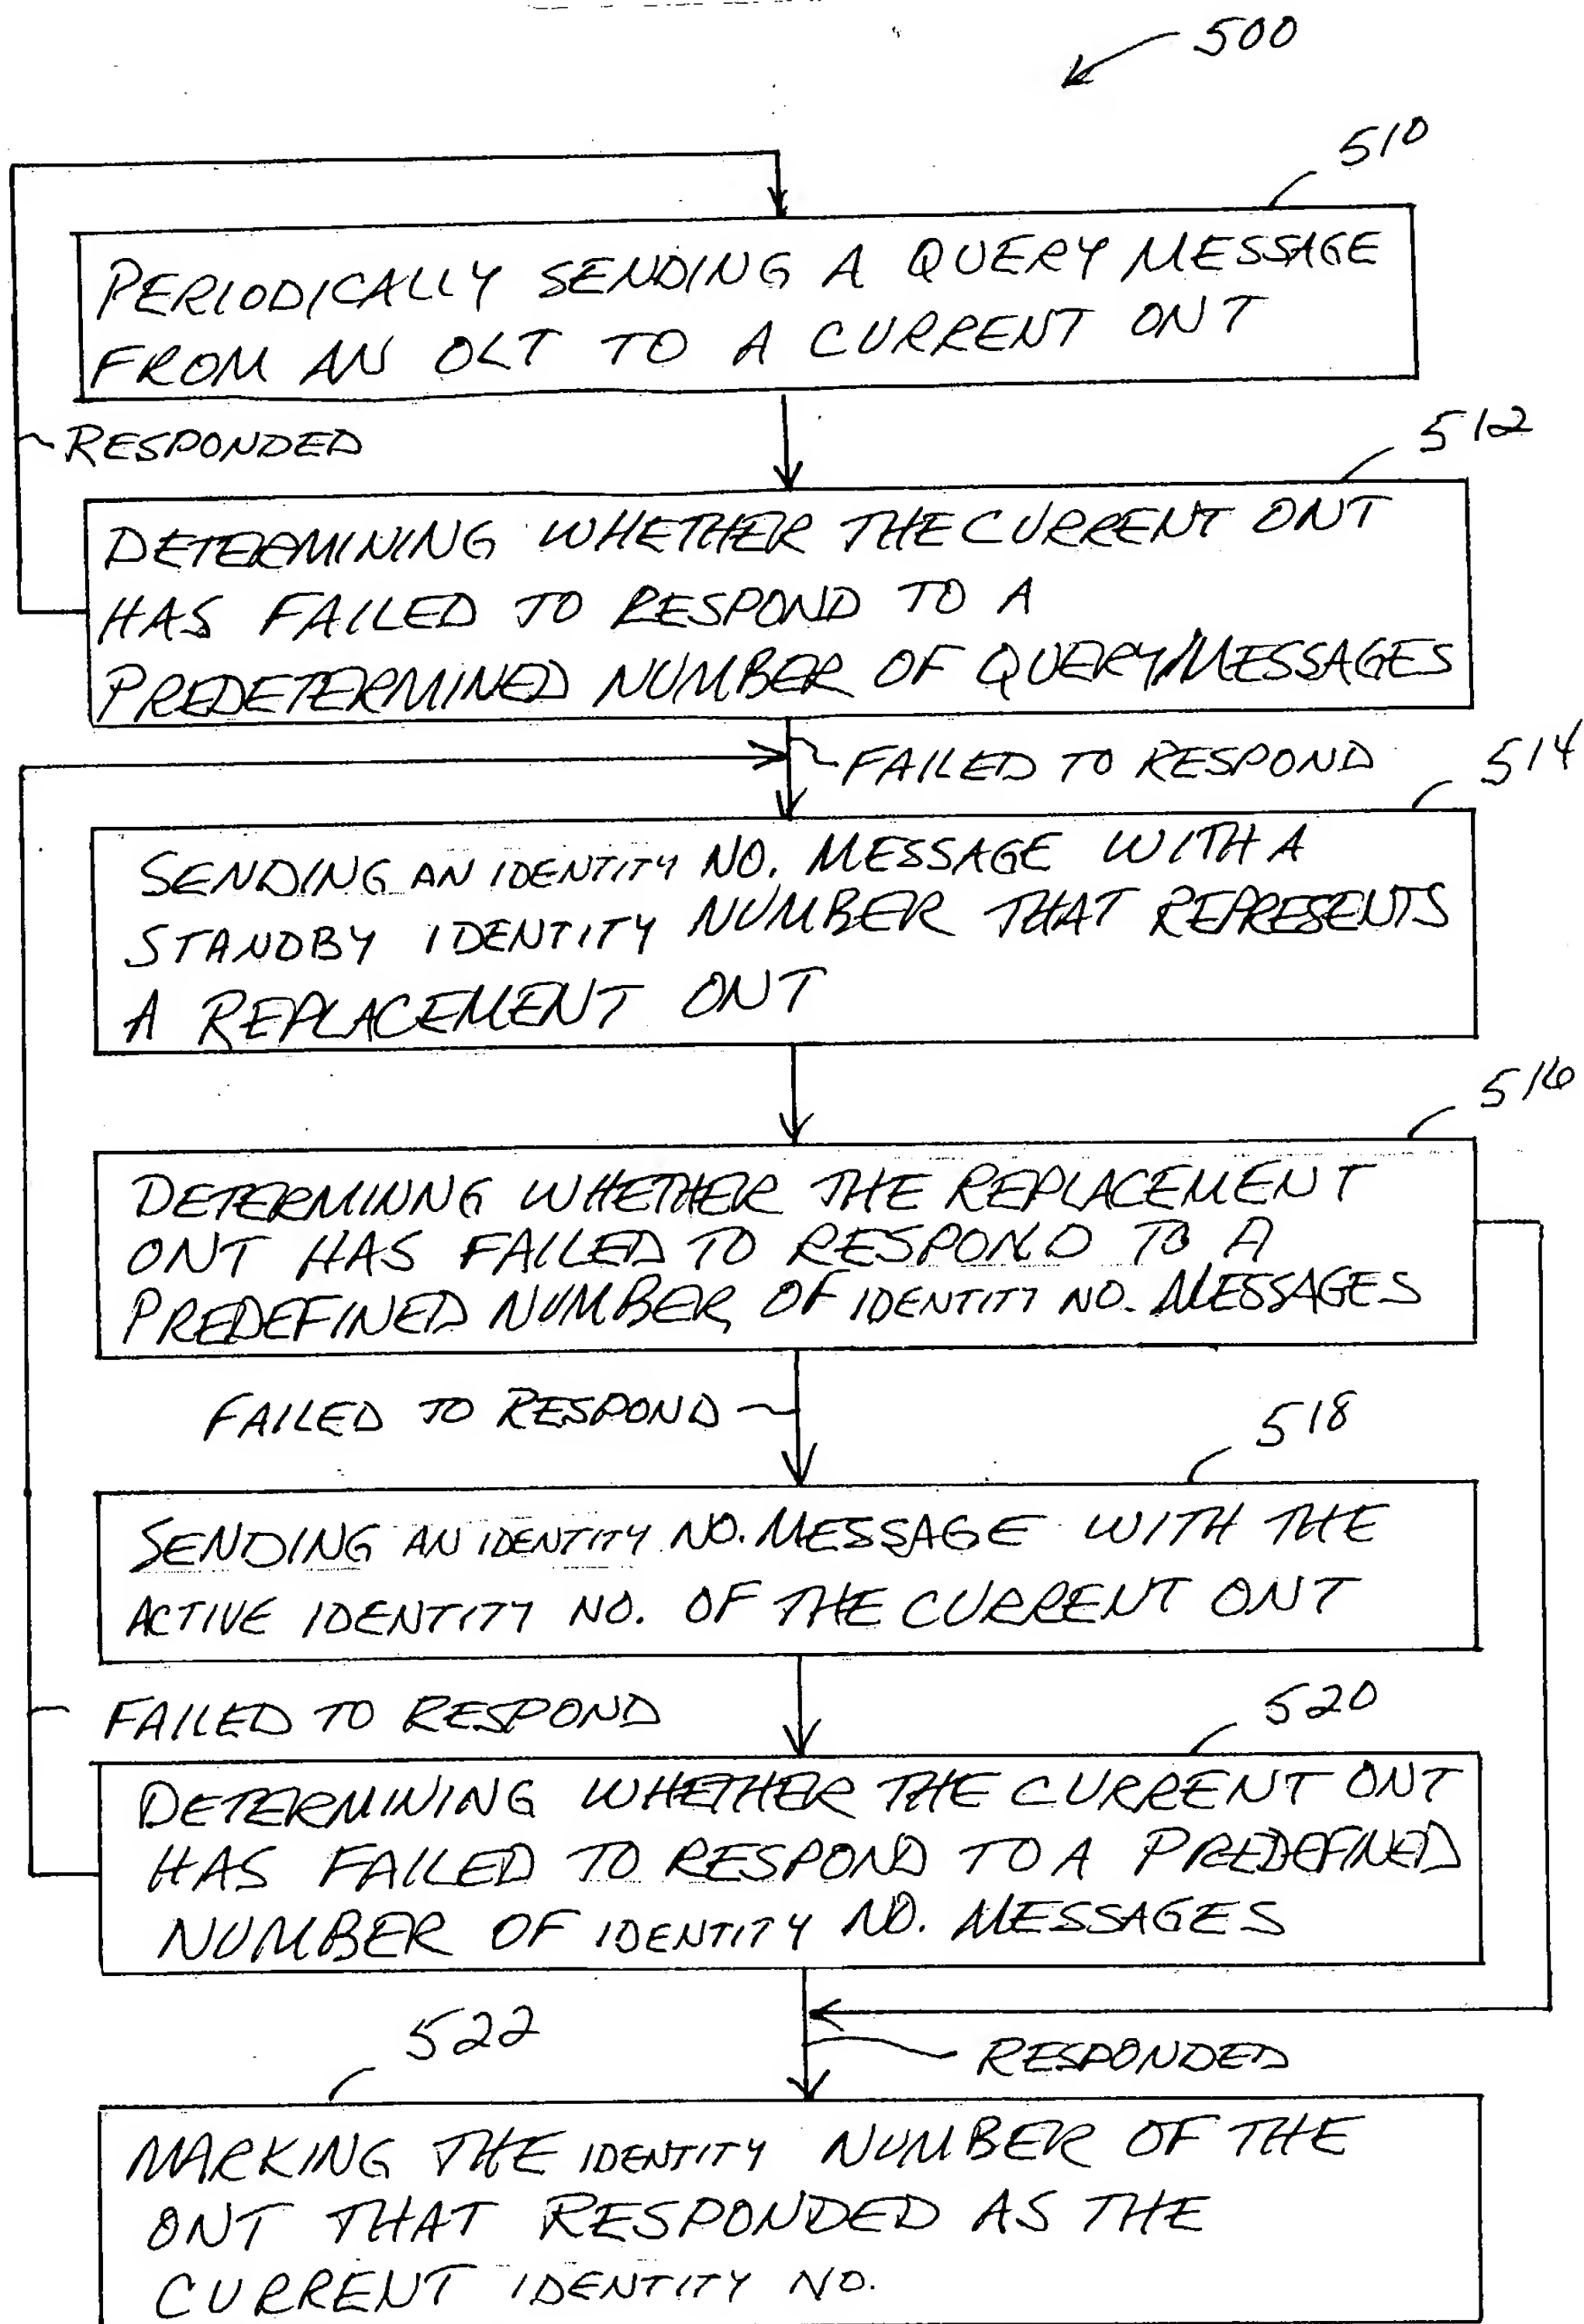 500
510
PERIODICALLY SENDING A QUERY MESSAGE
FROM AN OLT TO A CURRENT ONT
RESPONDED
512
DETERMINING WHETHER THE CURRENT ONT
HAS FAILED TO RESPOND TO A
PREDETERMINED NUMBER OF QUERY MESSAGES
FAILED TO RESPOND
514
SENDING AN IDENTITY NO. MESSAGE WITH A
STANDBY IDENTITY NUMBER THAT REPRESENTS
A REPLACEMENT ONT
516
DETERMINNG WHETHER THE REPLACEMENT
ONT HAS FAILED TO RESPOND TO A
PREDEFINED NUMBER OF IDENTITY NO. MESSAGES
FAILED TO RESPOND
518
SENDING AN IDENTITY NO. MESSAGE WITH THE
ACTIVE IDENTITY NO. OF THE CURRENT ONT
FAILED TO RESPOND
520
DETERMINING WHETHER THE CURRENT ONT
HAS FAILED TO RESPOND TO A PREDEFINED
NUMBER OF IDENTITY NO. MESSAGES
522
RESPONDED
MARKING THE IDENTITY NUMBER OF THE
ONT THAT RESPONDED AS THE
CURRENT IDENTITY NO.